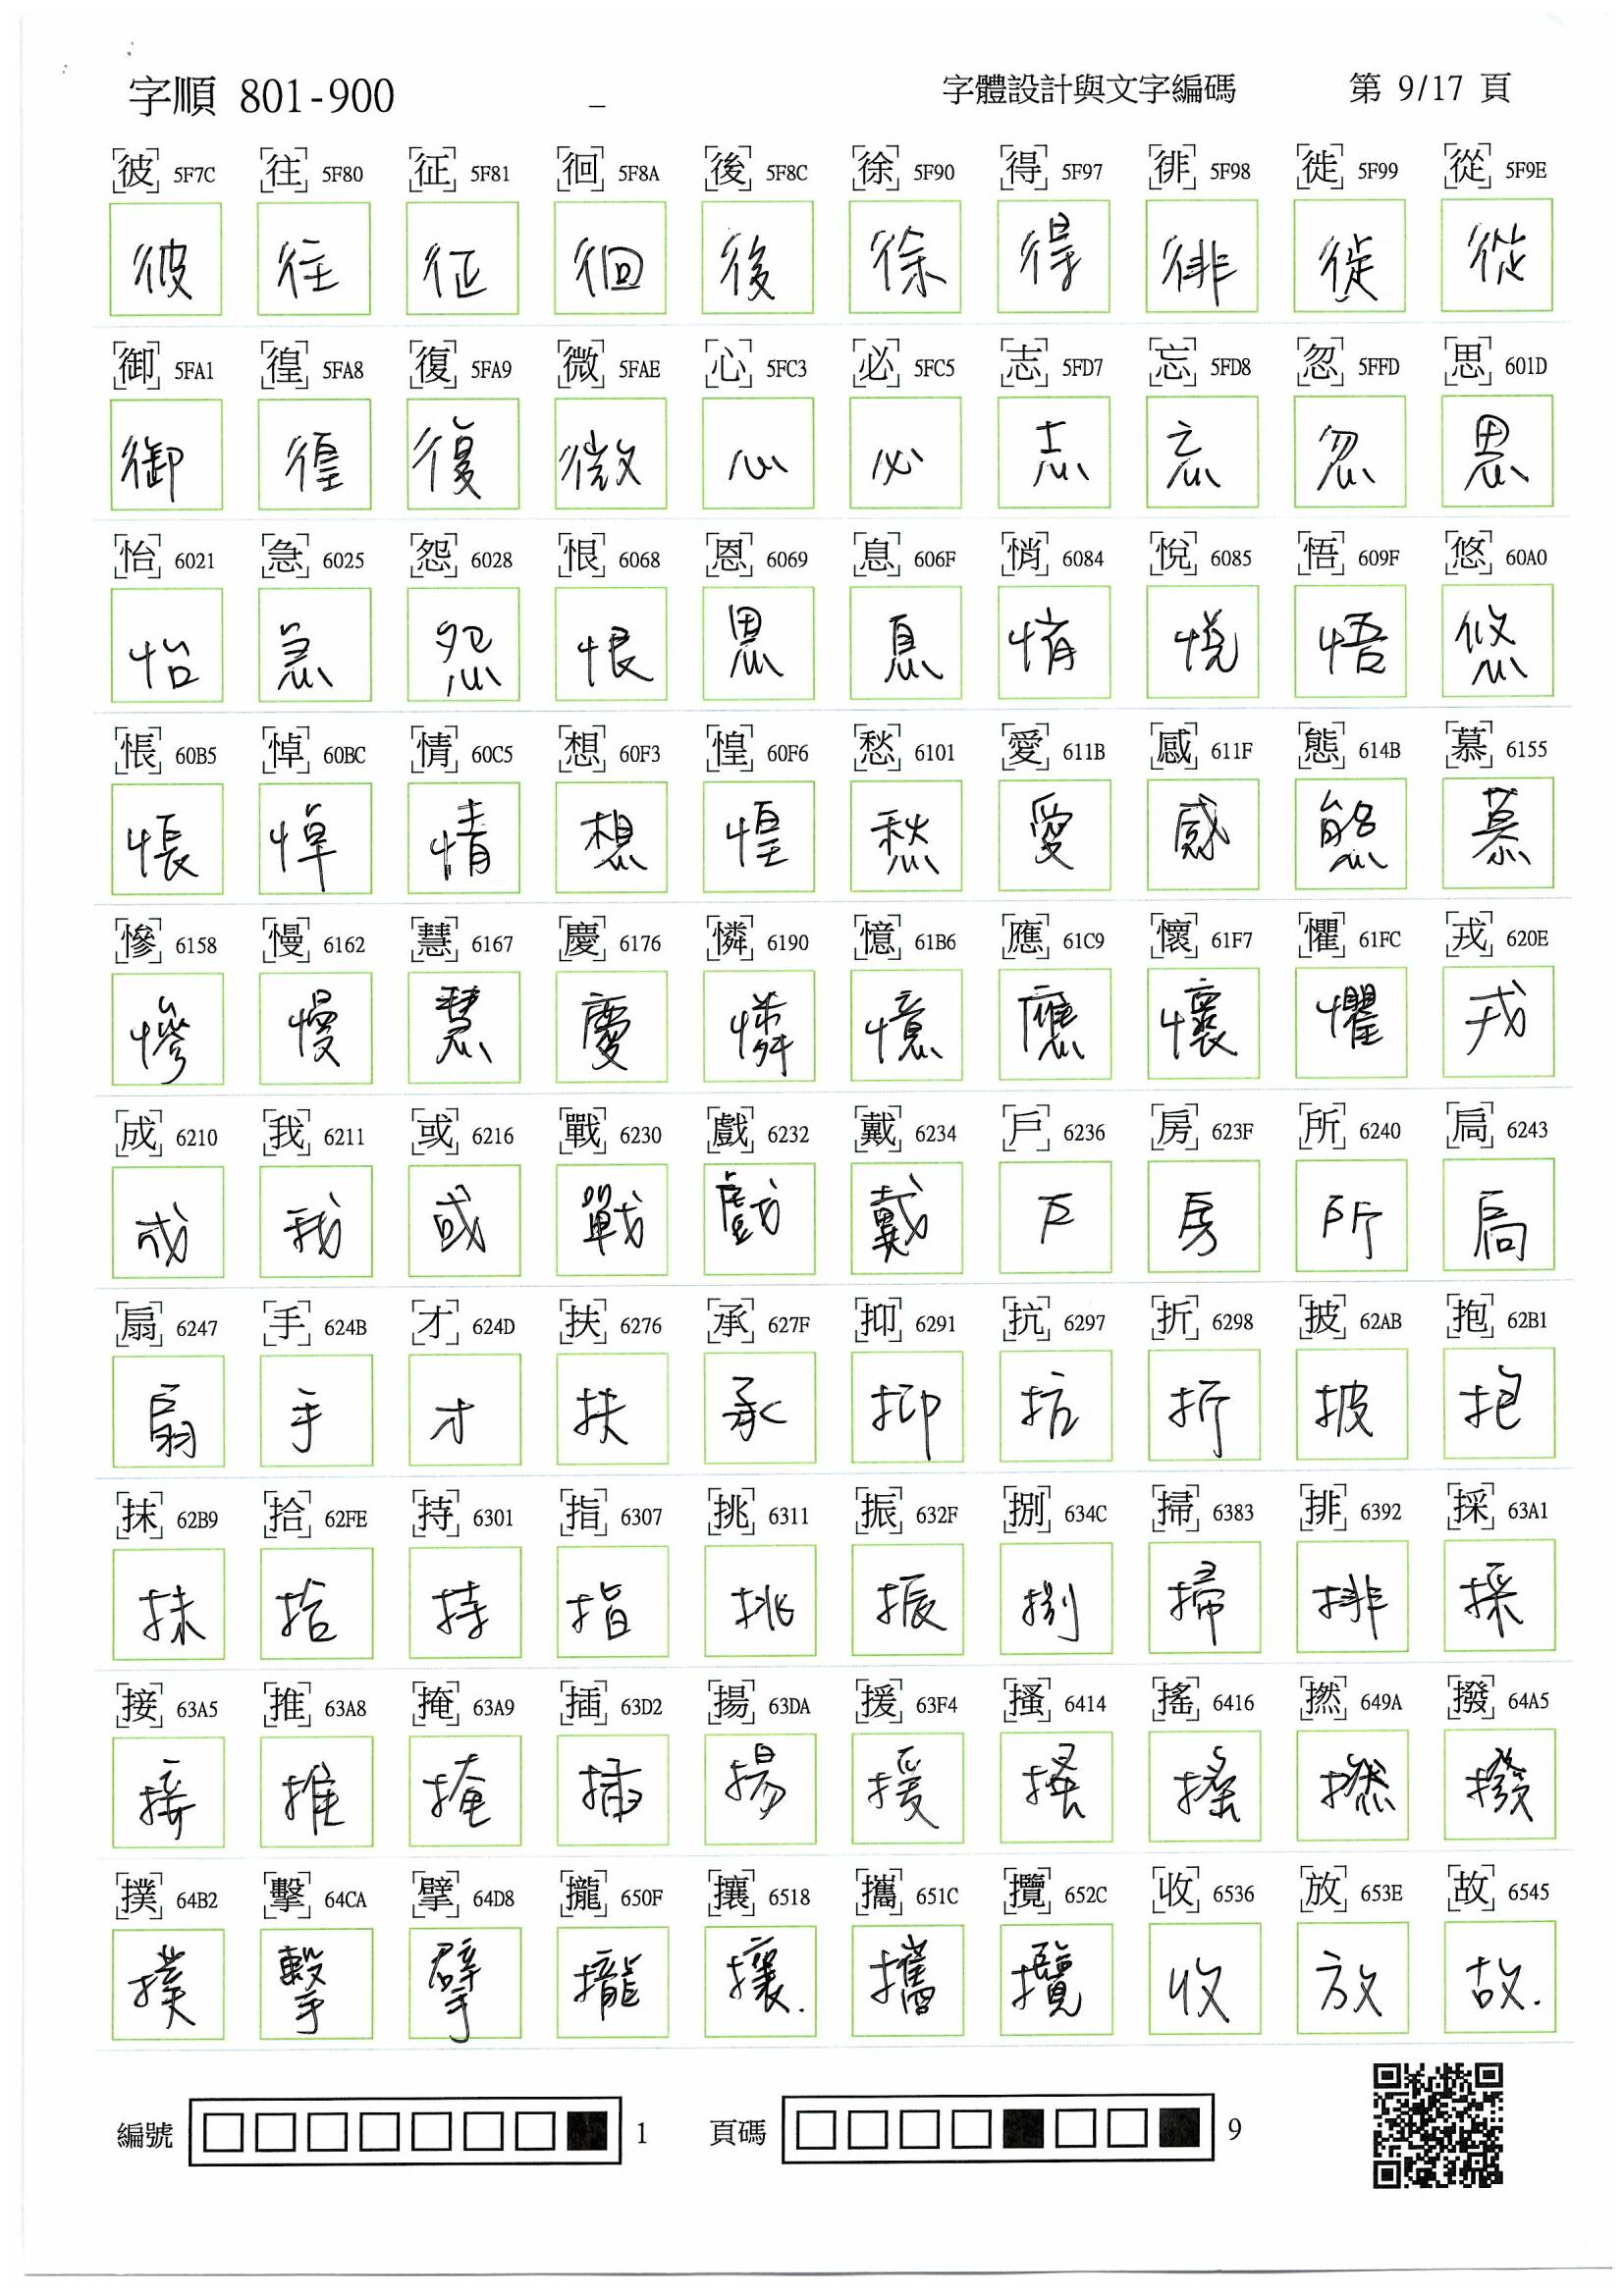 字順 801-900 _ 字體設計與文字編碼 第 9/17 頁
彼 5F7C 往 5F80 征 5F81 徊 5F8A 後 5F8C 徐 5F90 得 5F97 徘 5F98 徙 5F99 從 5F9E
彼 往 征 徊 後 徐 得 徘 徙 從
御 5FA1 徨 5FA8 復 5FA9 微 5FAE 心 5FC3 必 5FC5 志 5FD7 忘 5FD8 忽 5FFD 思 601D
御 徨 復 微 心 必 志 忘 忽 思
怡 6021 急 6025 怨 6028 恨 6068 恩 6069 息 606F 悄 6084 悅 6085 悟 609F 悠 60A0
怡 急 怨 恨 恩 息 悄 悅 悟 悠
悵 60B5 悼 60BC 情 60C5 想 60F3 惶 60F6 愁 6101 愛 611B 感 611F 態 614B 慕 6155
悵 悼 情 想 惶 愁 愛 感 態 慕
慘 6158 慢 6162 慧 6167 慶 6176 憐 6190 憶 61B6 應 61C9 懷 61F7 懼 61FC 戎 620E
慘 慢 慧 慶 憐 憶 應 懷 懼 戎
成 6210 我 6211 或 6216 戰 6230 戲 6232 戴 6234 戶 6236 房 623F 所 6240 扃 6243
成 我 或 戰 戲 戴 戶 房 所 扃
扇 6247 手 624B 才 624D 扶 6276 承 627F 抑 6291 抗 6297 折 6298 披 62AB 抱 62B1
扇 手 才 扶 承 抑 抗 折 披 抱
抹 62B9 拾 62FE 持 6301 指 6307 挑 6311 振 632F 捌 634C 掃 6383 排 6392 採 63A1
抹 拾 持 指 挑 振 捌 掃 排 採
接 63A5 推 63A8 掩 63A9 插 63D2 揚 63DA 援 63F4 搔 6414 搖 6416 撚 649A 撥 64A5
接 推 掩 插 揚 援 搔 搖 撚 撥
撲 64B2 擊 64CA 擘 64D8 攏 650F 攘 6518 攜 651C 攬 652C 收 6536 放 653E 故 6545
撲 擊 擘 攏 攘. 攜 攬 收 放 故.
編號 1 頁碼 9